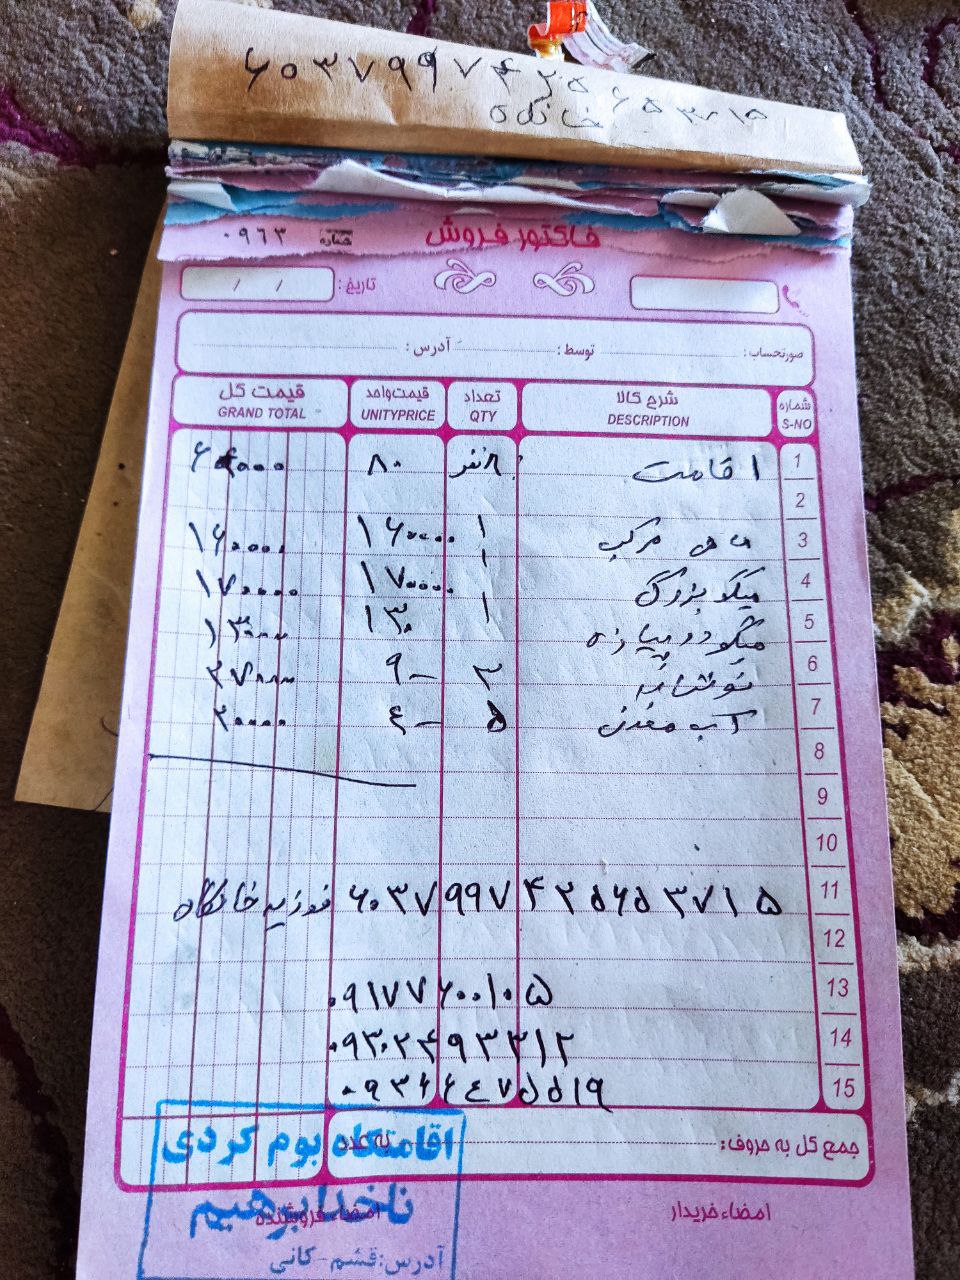 ۶۰۳۷۹۹۷۴۲۵۶۵۳۷۱۵
خانگاه
فاکتور فروش
شماره ۰۹۶۳
تاریخ: / /
صورتحساب: توسط: آدرس:
شماره شرح کالا تعداد قیمت واحد قیمت کل
S-NO DESCRIPTION QTY UNITYPRICE GRAND TOTAL
1 اقامت ۸ نفر ۸۰
2
3 ماهی مرکب ۱ ۱۶۰۰۰۰ ۱۶۰۰۰۰
4 میگو بزرگ ۱ ۱۷۰۰۰۰ ۱۷۰۰۰۰
5 میگو دوپیازه ۱ ۱۳۰ ۱۳۰۰۰۰
6 نوشابه ۳ ۹- ۲۷۰۰۰
7 آب معدنی ۵ ۴- ۲۰۰۰۰
8
9
10
11 ۶۰۳۷۹۹۷۴۲۵۶۵۳۷۱۵ فوزیه خانگاه
12
13 ۰۹۱۷۷۶۰۰۱۰۵
14 ۰۹۳۰۲۴۹۳۳۱۲
15 ۰۹۳۶۶۴۷۵۵۱۹
جمع کل به حروف: به عدد
امضاء خریدار امضاء فروشنده
اقامتگاه بوم گردی
ناخدا ابرهیم
آدرس: قشم-کانی